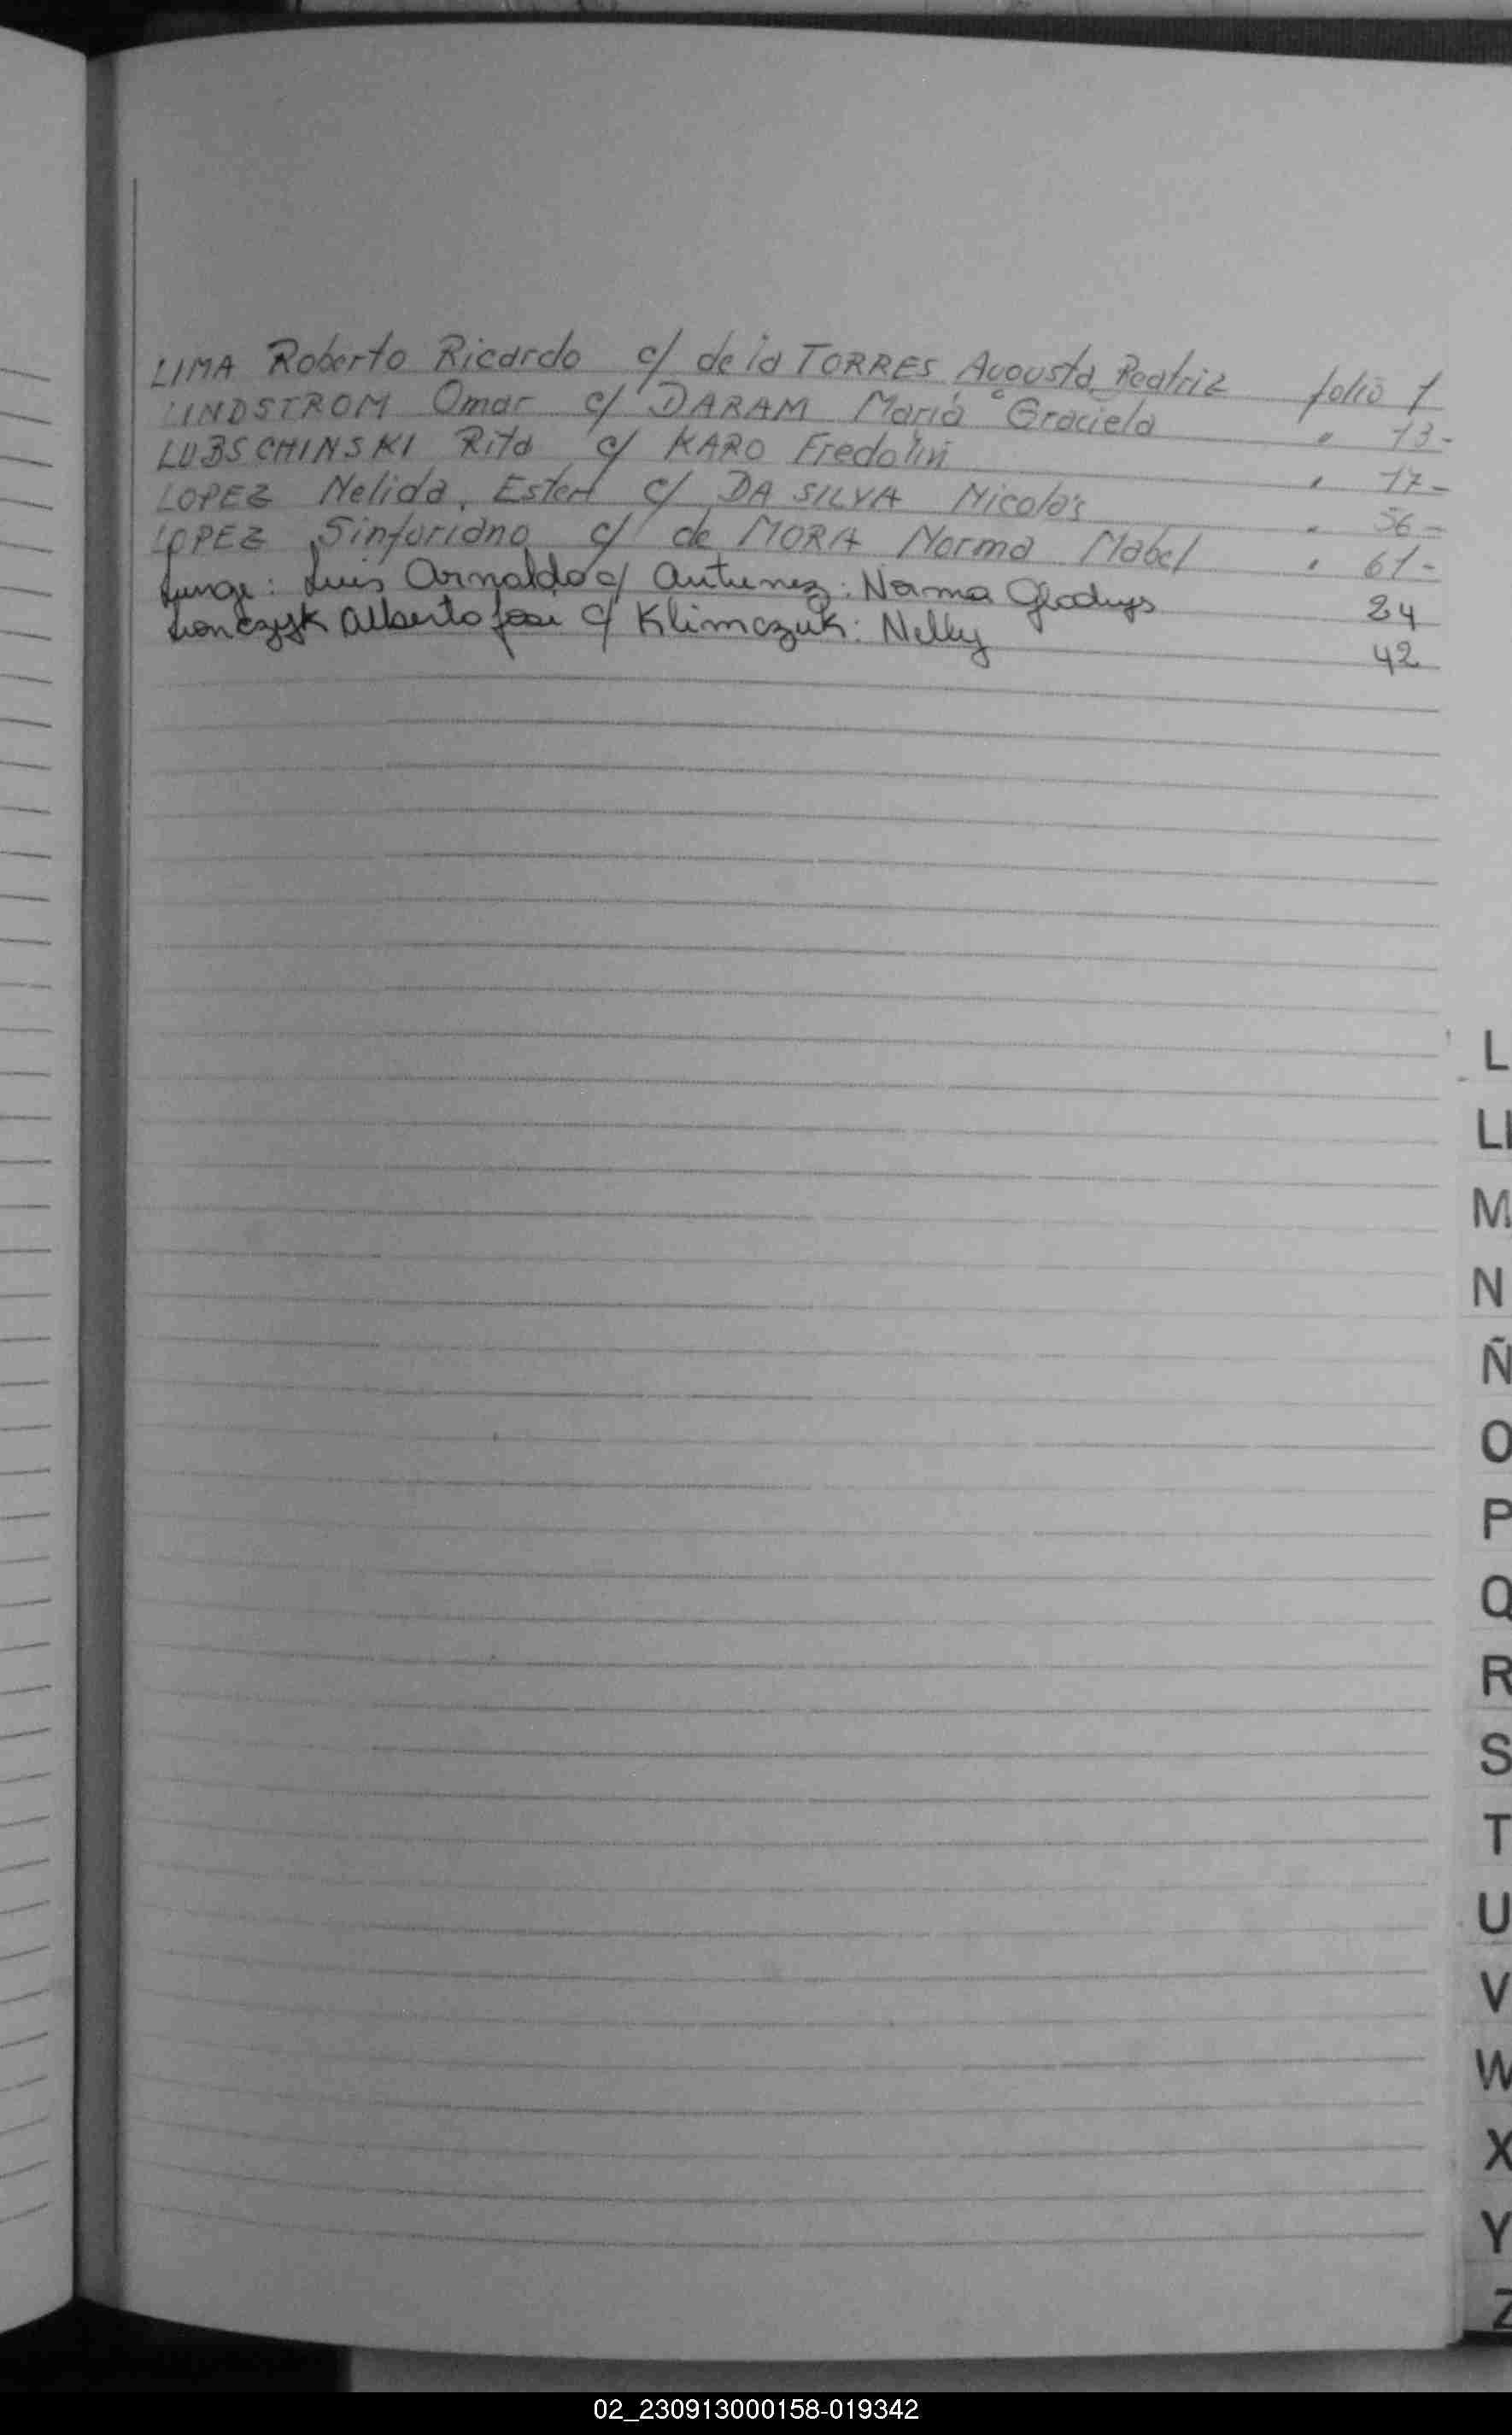 LIMA Roberto Ricardo c/ de la TORRES Augusta Beatriz folio 1
LINDSTROM Omar c/ DARAM María Graciela " 13-
LUBSCHINSKI Rita c/ KARO Fredolin " 17-
LOPEZ Nelida, Ester c/ DA SILVA Nicolás " 56-
LOPEZ Sinforiano c/ de MORA Norma Mabel " 61-
Lunge: Luis Arnaldo c/ Antunez: Norma Gladys 24
Lionczyk Alberto Jose c/ Klimczuk: Nelly 42
L
Ll
M
N
Ñ
O
P
Q
R
S
T
U
V
W
X
Y
Z
02_230913000158-019342